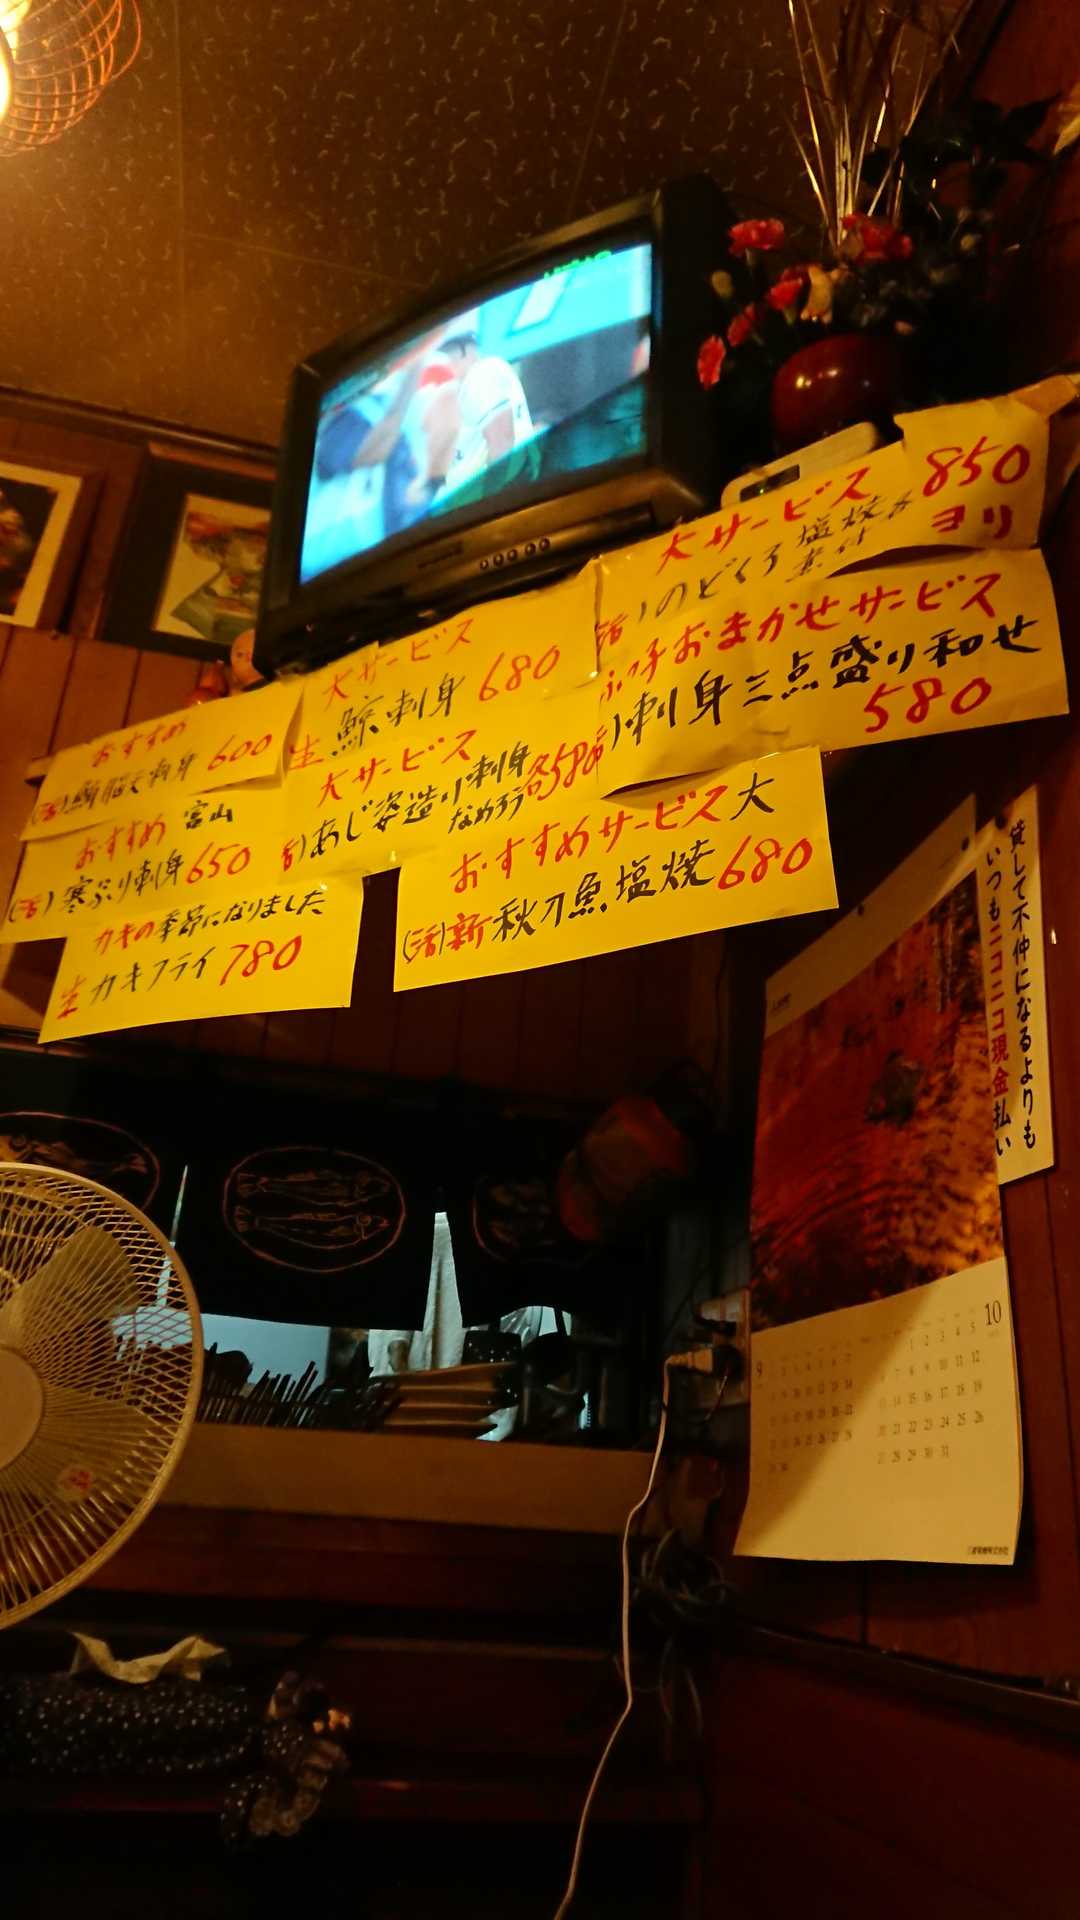 大サービス 850
ヨリ
のどくろ 塩焼き
煮付
おまかせサービス
刺身三点盛り和せ
580
大サービス
生 鯨刺身 680
大サービス
(活)あじ姿造り刺身
なめろう 各580
おすすめサービス大
(活)新秋刀魚塩焼680
おすすめ
刺身 600
おすすめ 富山
(活)寒ぶり刺身650
カキの季節になりました
生カキフライ780
貸して不仲になるよりも
いつもニコニコ現金払い
10
1 2 3 4 5
7 8 9 10 11 12
14 15 16 17 18 19
21 22 23 24 25 26
28 29 30 31
9